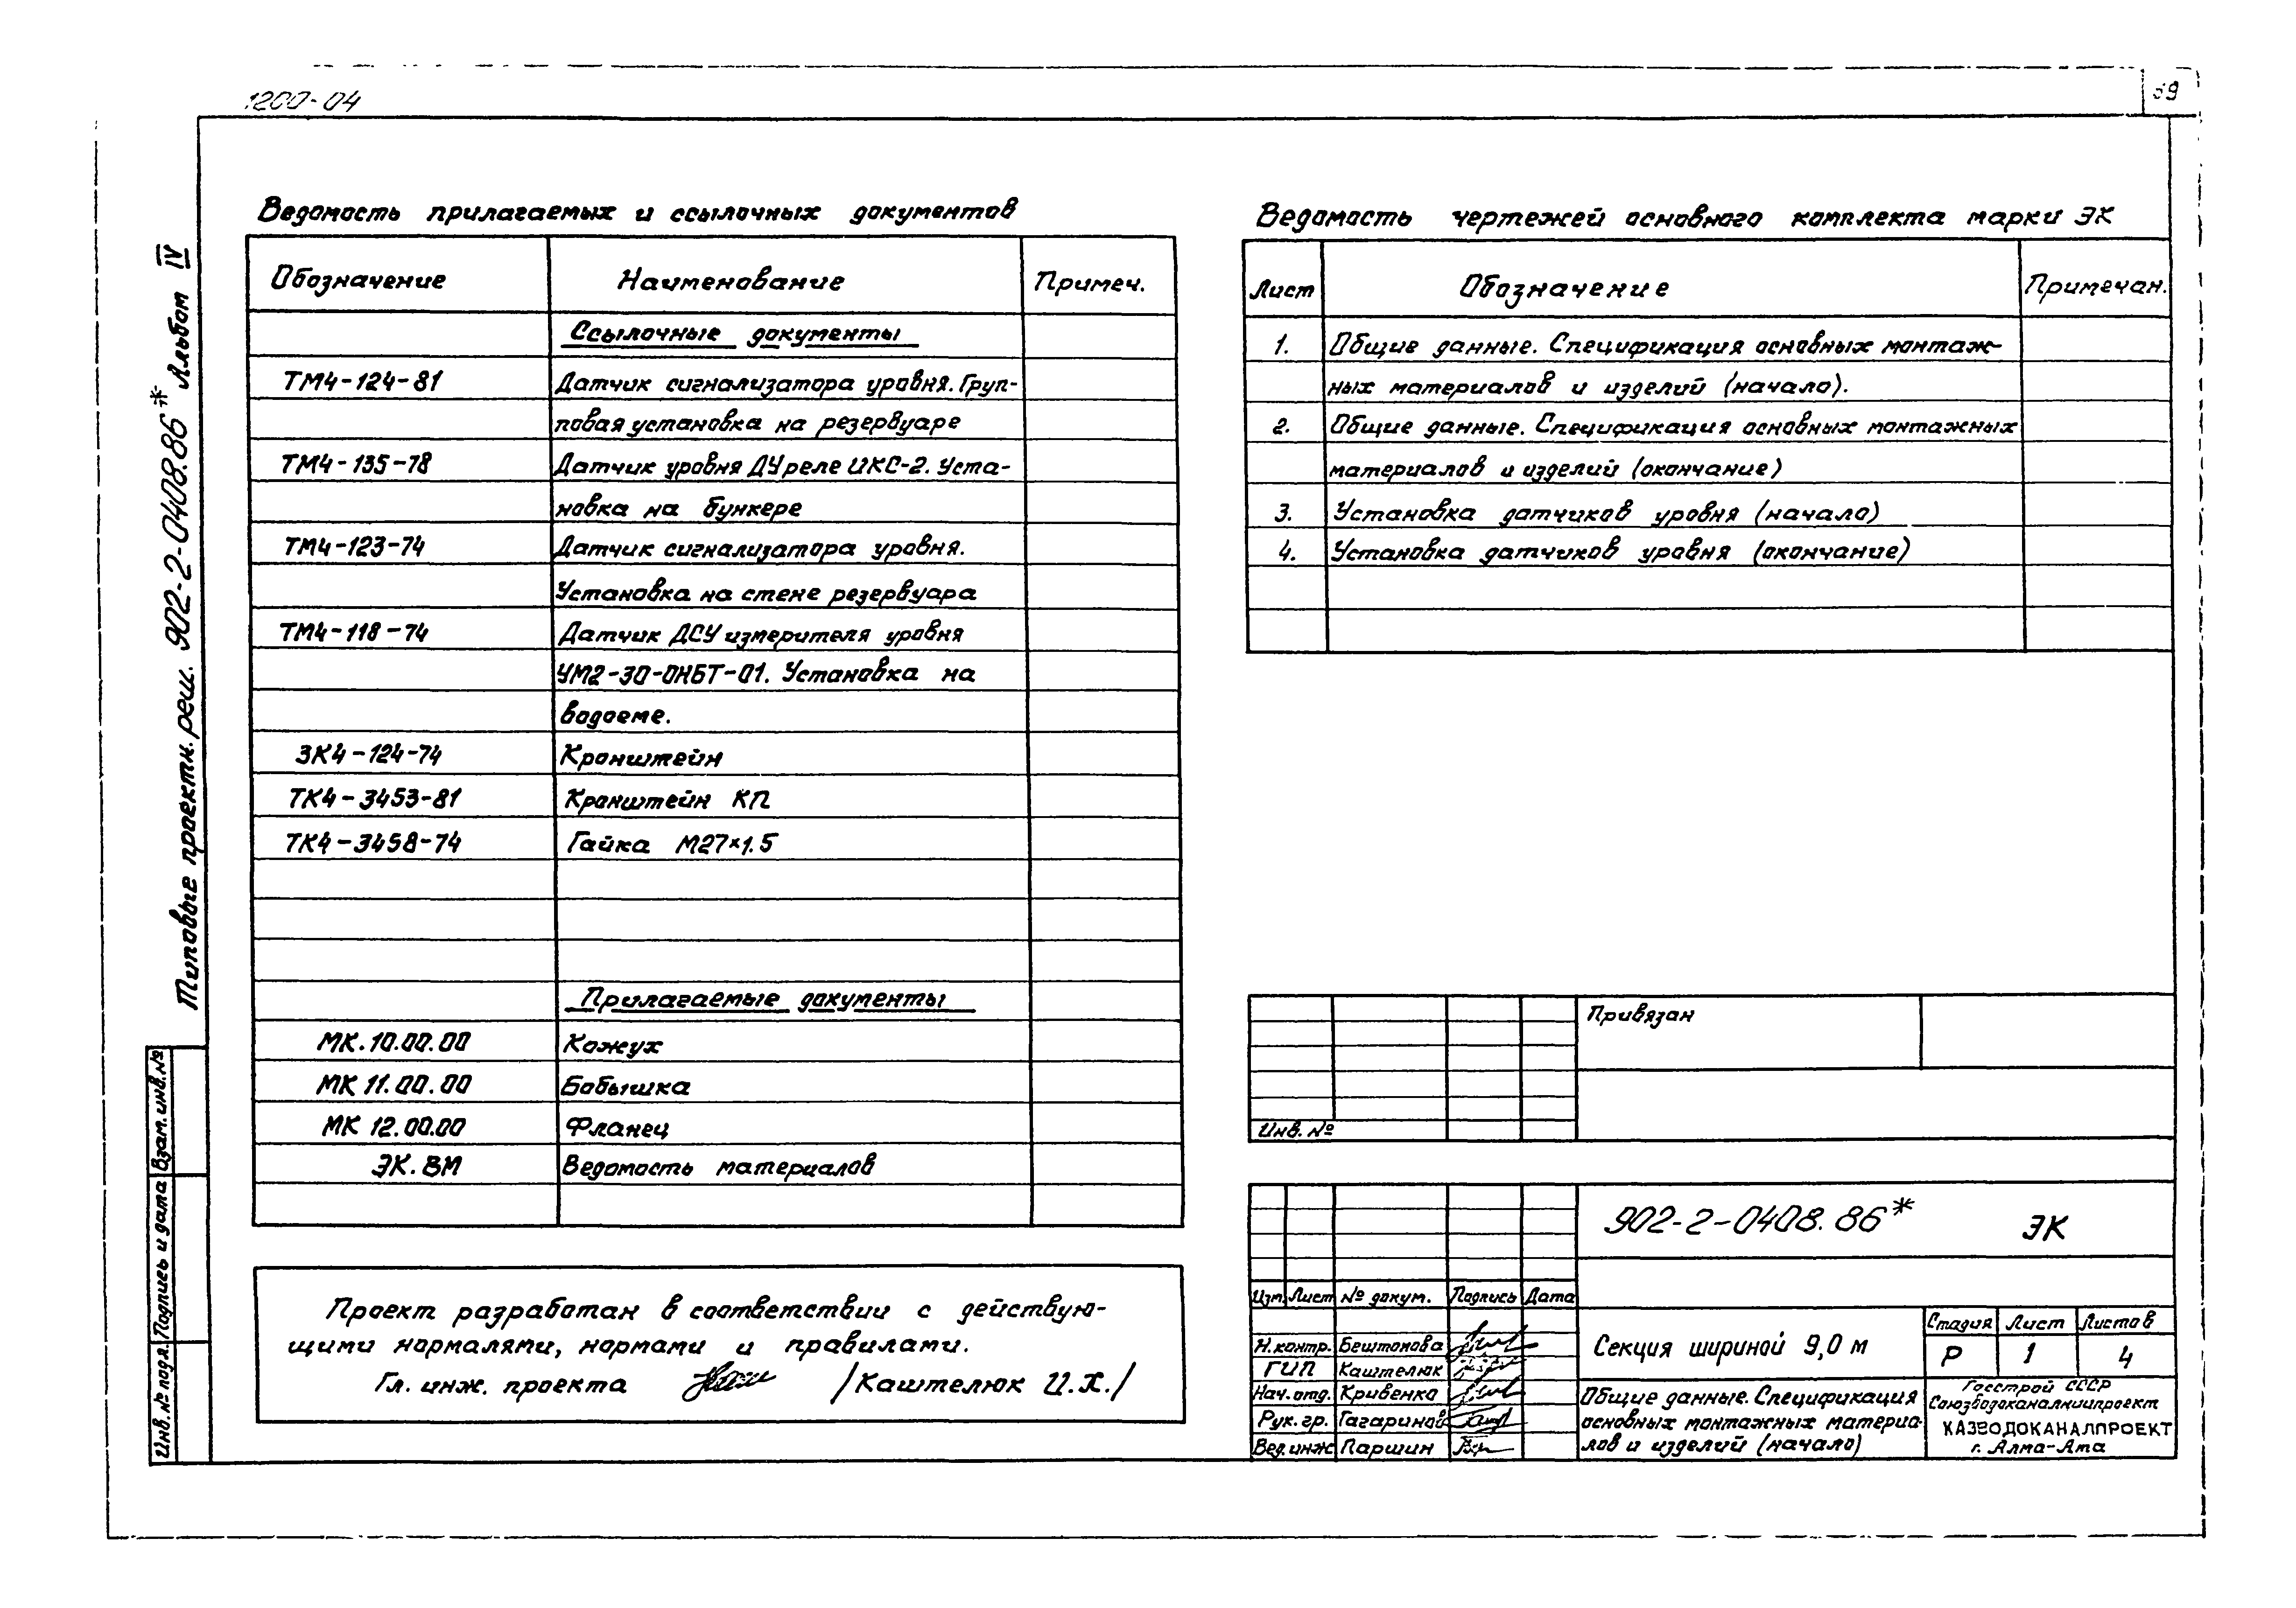 1200-04
Типовые проектн. реш. 902-2-0408.86* Альбом IV
Ведомость прилагаемых и ссылочных документов
Обозначение Наименование Примеч.
Ссылочные документы
ТМ4-124-81 Датчик сигнализатора уровня. Груп-
повая установка на резервуаре
ТМ4-135-78 Датчик уровня ДУ реле ИКС-2. Уста-
новка на бункере
ТМ4-123-74 Датчик сигнализатора уровня.
Установка на стене резервуара
ТМ4-118-74 Датчик ДСУ измерителя уровня
УМ2-30-ОНБТ-01. Установка на
водоеме.
ЗК4-124-74 Кронштейн
ТК4-3453-81 Кронштейн КП
ТК4-3458-74 Гайка М27×1.5
Прилагаемые документы
МК.10.00.00 Кожух
МК 11.00.00 Бобышка
МК 12.00.00 Фланец
ЭК.ВМ Ведомость материалов
Проект разработан в соответствии с действую-
щими нормалями, нормами и правилами.
Гл. инж. проекта /Каштелюк И.Х./
Ведомость чертежей основного комплекта марки ЭК
Лист Обозначение Примечан.
1. Общие данные. Спецификация основных монтаж-
ных материалов и изделий (начало).
2. Общие данные. Спецификация основных монтажных
материалов и изделий (окончание)
3. Установка датчиков уровня (начало)
4. Установка датчиков уровня (окончание)
Привязан
Инв. №
902-2-0408.86* ЭК
Изм Лист № докум. Подпись Дата
Н.контр. Бештонова
ГИП Каштелюк
Нач. отд. Кривенко
Рук. гр. Гагаринов
Вед.инж Паршин
Секция шириной 9,0 м
Стадия Лист Листов
Р 1 4
Общие данные. Спецификация
основных монтажных материа-
лов и изделий (начало)
Госстрой СССР
Союзводоканалниипроект
КАЗВОДОКАНАЛПРОЕКТ
г. Алма-Ата
Взам. инв. №
Подпись и дата
Инв. № подл.